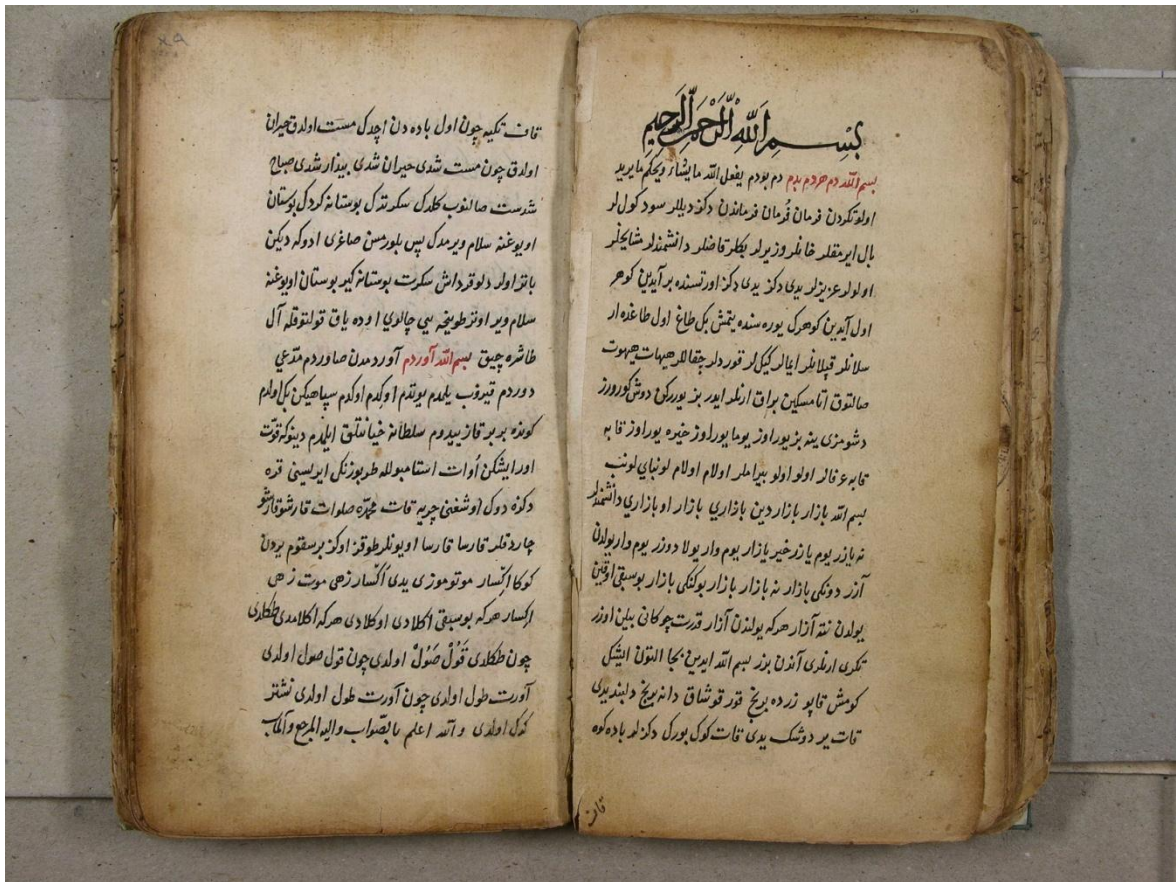 بسم الله الرحمن الرحيم
بسم الله دم هردم بدم دم بودم يفعل الله مايشاء ويحكم مايريد
اولو تكردن فرمان فرمان فرماندن دكز ديللر سود كول لر
بال ايرمقلر خانلر وزيرلر بكلر قاضلر دانشمندلر مشايخلر
اولولر عزيزلر يدى دكز يدى دكز اورتسنده بر آيدين كوهر
اول آيدين كوهرك يوره سنده يتمش بك طاغ اول طاغده ار
سلانلر قپلانلر ايمالر كيكلر قوردلر چقاللر هيهات هيهوت
صالتوق اتا مسكين براق ارنلر ايدر بز يوررك دوش كورورز
دشومزى ينه بز يوراوز يوما يوراوز خيره يوراوز قابه
قابه عفالر اولو اولو بيراملر اولام اولام لونباي لونب
بسم الله بازار بازار دين بازاري بازار او بازاري دانشمندلر
نه يازر يوم يازر خير يازار يوم وار يولا دوزر يوم وار يولدن
آزر دونكى بازار نه بازار بازار بوكنكى بازار بوسبقى اوقين
يولدن نته آزار هركه يولندن آزار قدرت چوكانى بيلين اوزر
تكرى ارنلرى آندن بزر بسم الله ايدين بجا التون ايشك
كومش قاپو زرده برنج قور قوشاق دانه برنج دلبند يدى
قات ير دوشك يدى قات كوك بورك دكزلر باده كوه
قاف
قاف تكيه چون اول باده دن اچدك مست اولدق حيران
اولدق چون مست شدى حيران شدى بيدار شدى صباح
شدست صالنوب كلدك سكرتدك بوستانه كردك بوستان
اويوغنه سلام ويرمدك پس بلورمسن صاغرى ادوكه ديكن
باتر اولر دلو قرداش سكرت بوستانه كير بوستان اويوغنه
سلام وير اوتر طوينجه يي چالوي اوده ياق قولتوقله آل
طاشره چيق بسم الله آوردم آوردمدن صاوردم مدعي
دوردم قيروب يلمدم يوتدم اوكدم اوكدم سپاهيكن بك اولدم
كونده بربر قاز ييدوم سلطانه خيانتلق ايلدم دينوكه قوت
اورا ايشكن آوات استامبولله طوپوزنكل ايريسنى قره
دكزه دوك اوشغنى چريه قات محمده صلوات قارشو قارشو
چاردقلر قارسا قارسا اويونلر طوقز اوكز بر سقوم يردن
كوكا اكسار موتوموزى يدى اكسار زهى موت زهى
اكسار هركه بوسبقى اكلادى اوكلادى هركه اكلامدى طكلادى
چون طكلدى قول صول اولدى چون قول صول اولدى
آورت طول اولدى چون آورت طول اولدى نشتر
كوك اولدى والله اعلم بالصواب واليه المرجع والمآب